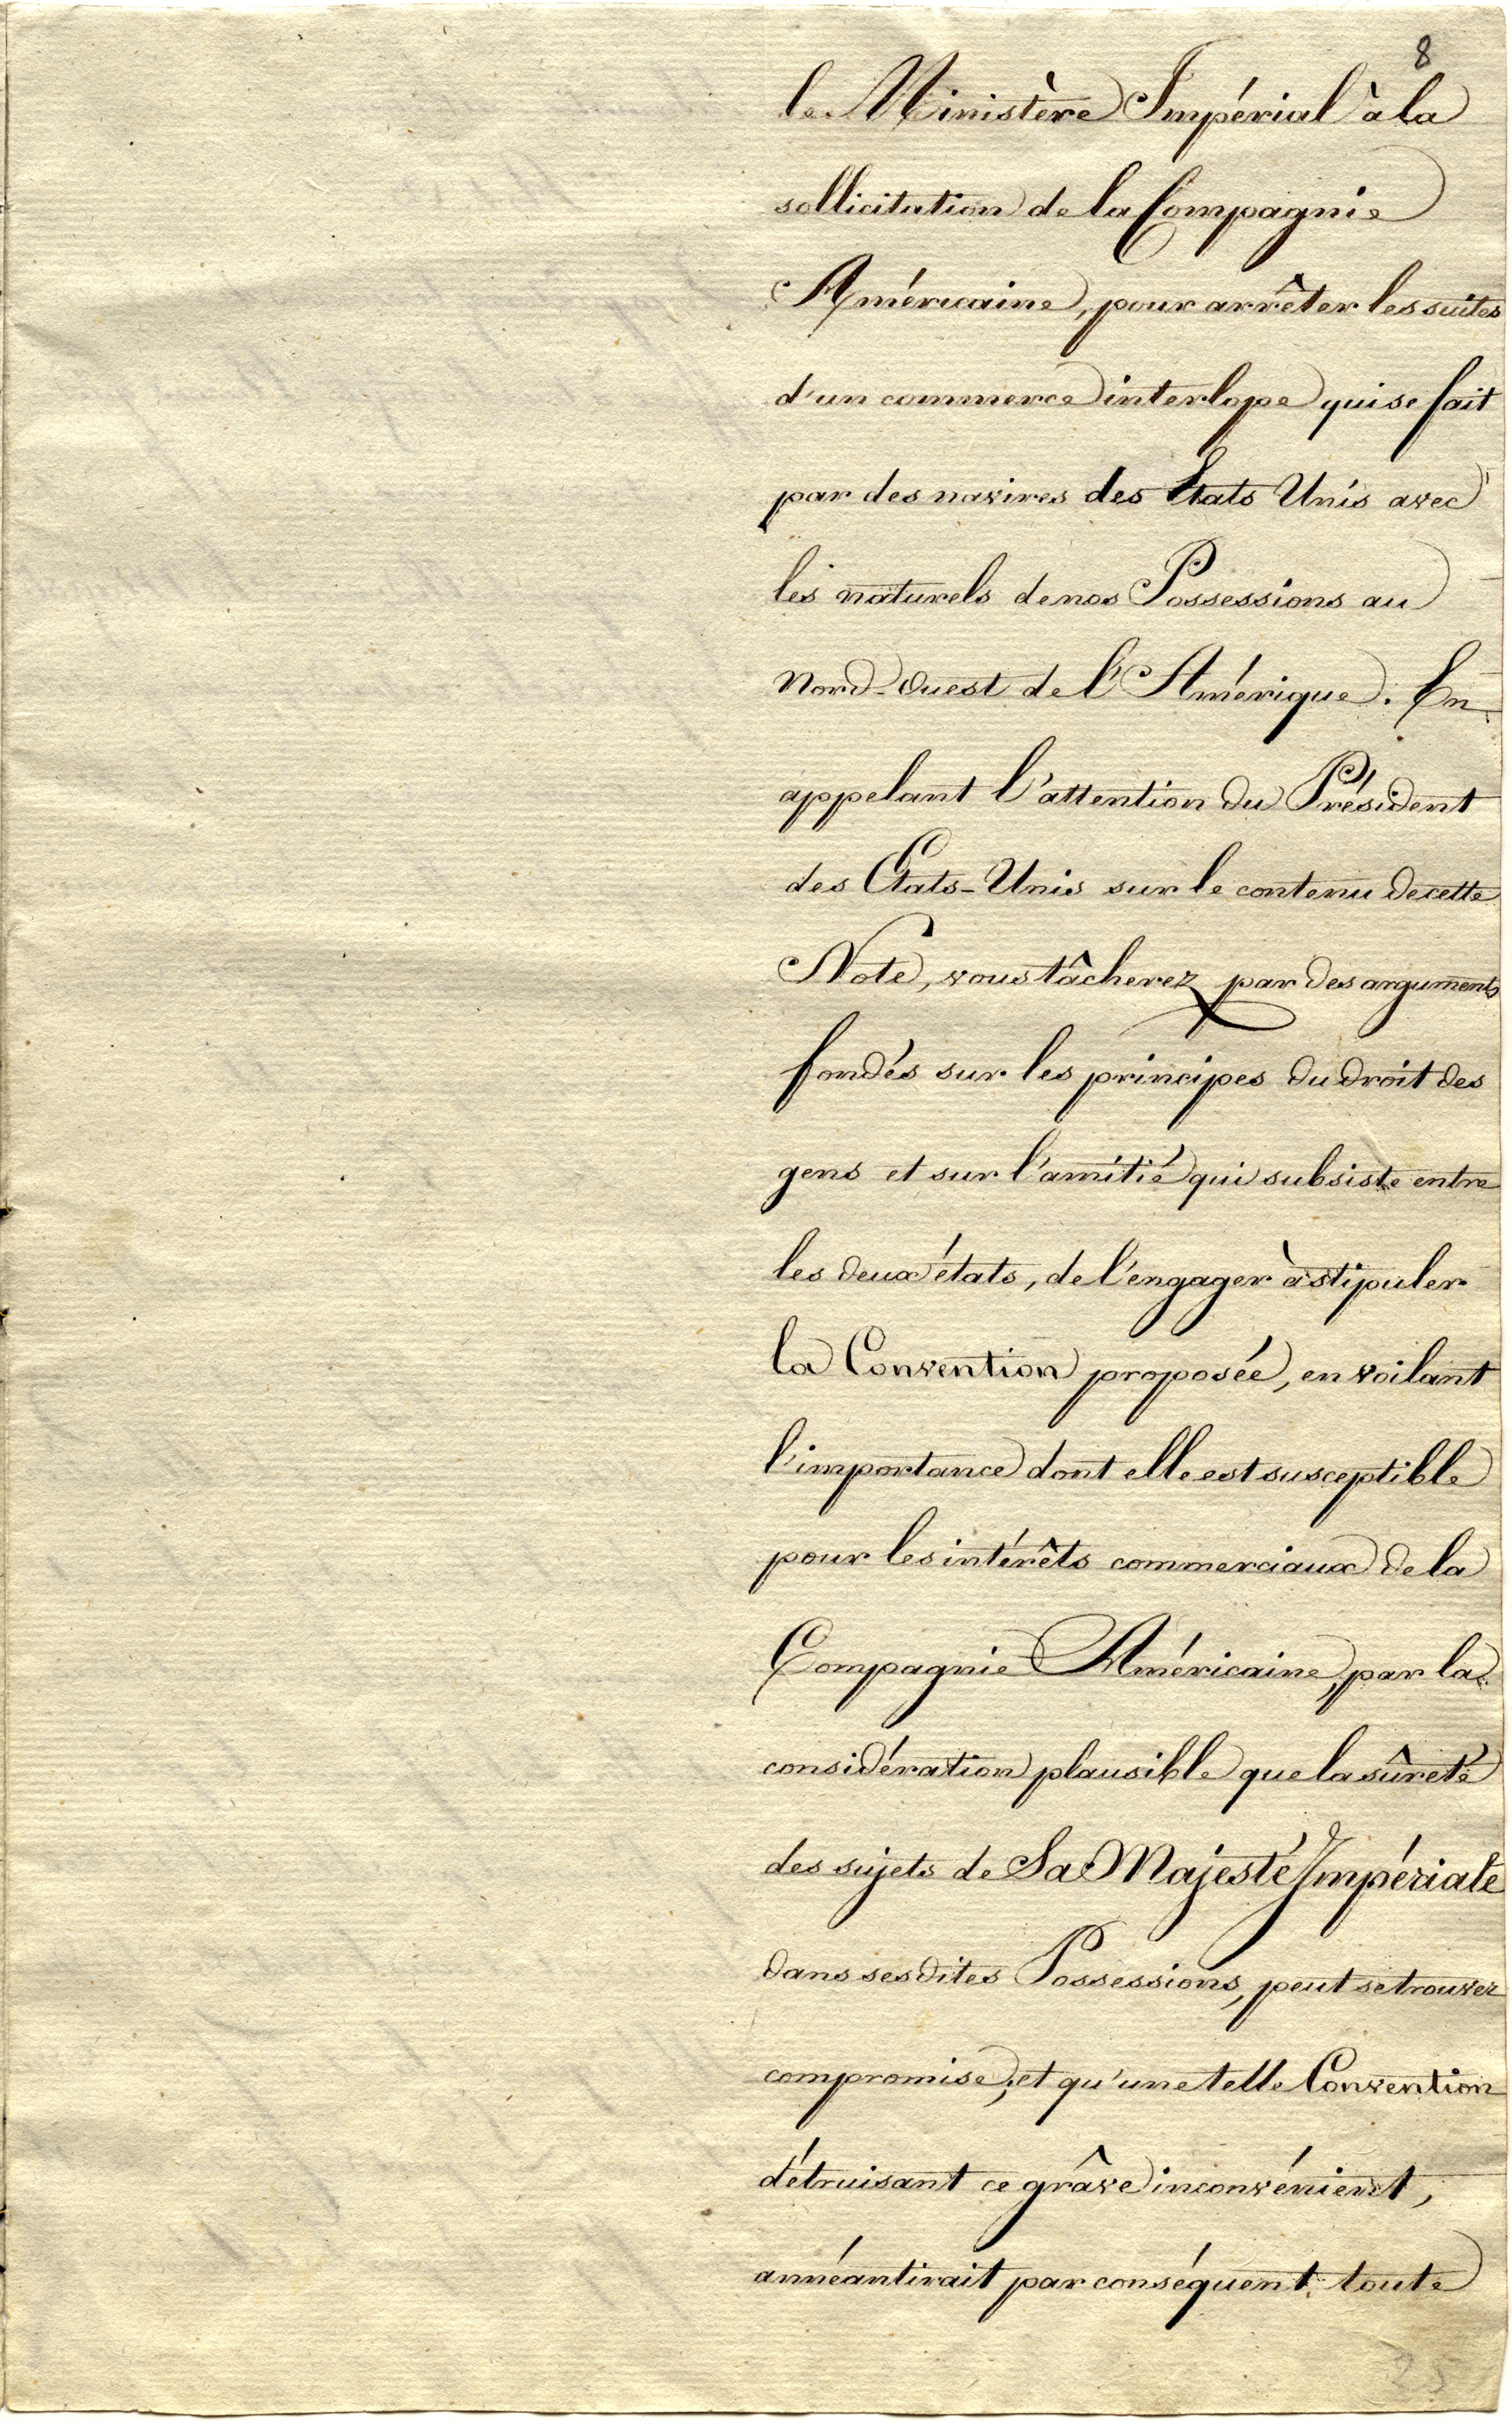 8
le Ministère Impérial à la
sollicitation de la Compagnie
Américaine, pour arrêter les suites
d'un commerce interlope qui se fait
par des navires des Etats Unis avec
les naturels de nos Possessions au
Nord-Ouest de l'Amérique. En
appelant l'attention du Président
des Etats-Unis sur le contenu de cette
Note, vous tâcherez par des arguments
fondés sur les principes du droit des
gens et sur l'amitié qui subsiste entre
les deux états, de l'engager à stipuler
la Convention proposée, en voilant
l'importance dont elle est susceptible
pour les intérêts commerciaux de la
Compagnie Américaine, par la
considération plausible que la sûreté
des sujets de Sa Majesté Impériale
dans ses dites Possessions, peut se trouver
compromise, et qu'une telle Convention
détruisant ce grâve inconvénient,
annéantirait par conséquent toute
25